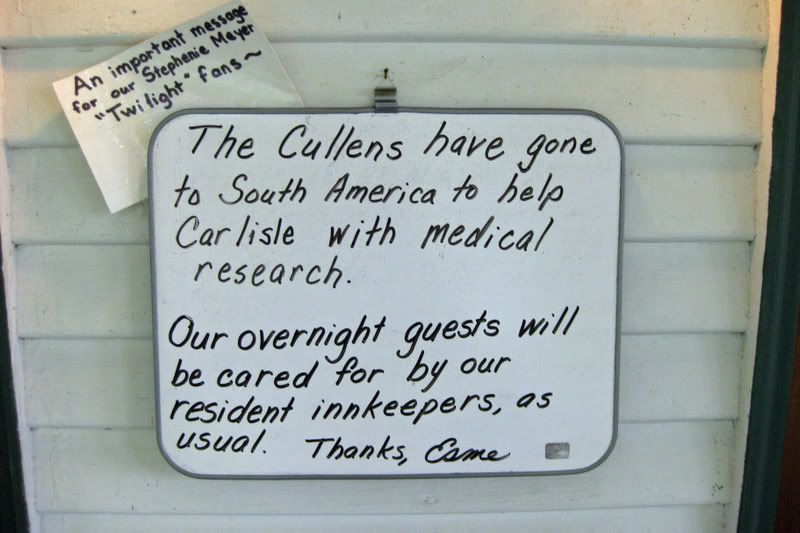 An important message
for our Stephenie Meyer
"Twilight" fans~
The Cullens have gone
to South America to help
Carlisle with medical
research.
Our overnight guests will
be cared for by our
resident innkeepers, as
usual. Thanks, Esme